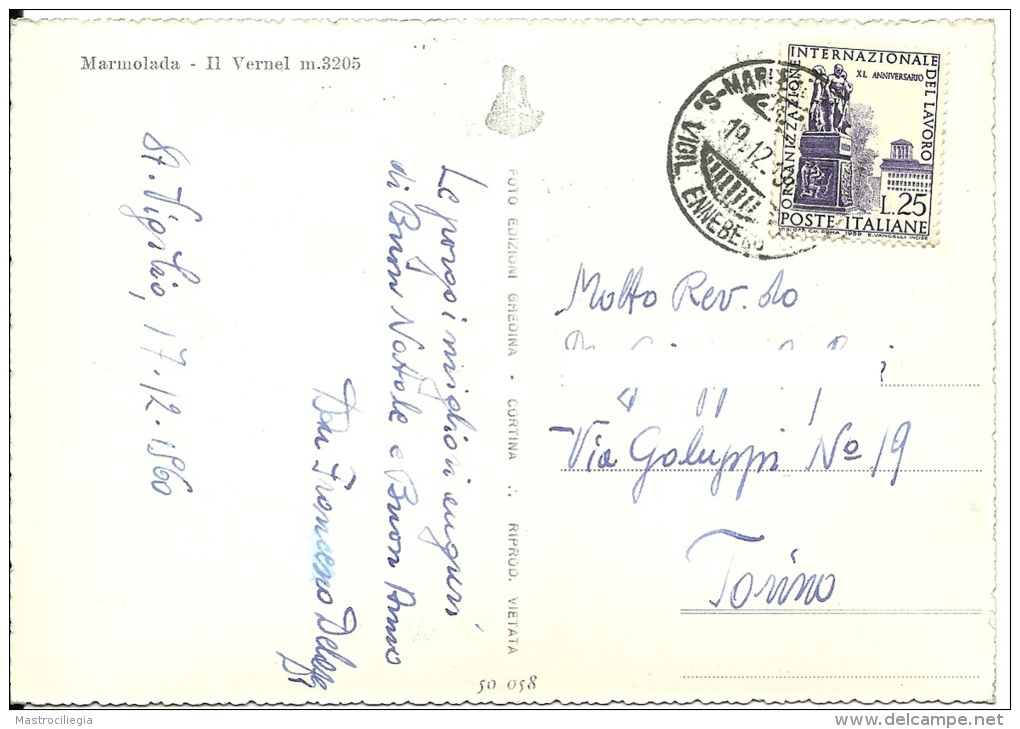 Marmolada - Il Vernel m.3205
St. Vigilio, 17.12.1960
Le porgo i migliori auguri
di Buon Natale e Buon Anno
Don Francesco
FOTO EDIZIONI GHEDINA · CORTINA ∴ RIPROD. VIETATA
50 058
S-MARI
VIGIL ENNEBERG
19.12.
ORGANIZZAZIONE INTERNAZIONALE DEL LAVORO
XL ANNIVERSARIO
L.25
POSTE ITALIANE
Molto Rev. do
Via Galuppi No 19
Torino
Mastrociliegia
delcampe.net